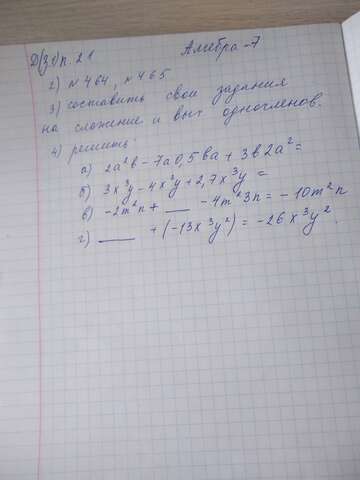 Алгебра-7
Д/з П. 21
2) №464, №465
3) составить свои задания
на сложение и выч одночленов.
4) решить
а) 2a²b - 7a0,5ba + 3b2a² =
б) 3x³y - 4x³y + 2,7x³y =
в) -2m²n + ___ - 4m²3n = -10m²n
г) ___ + (-13x³y²) = -26x³y².